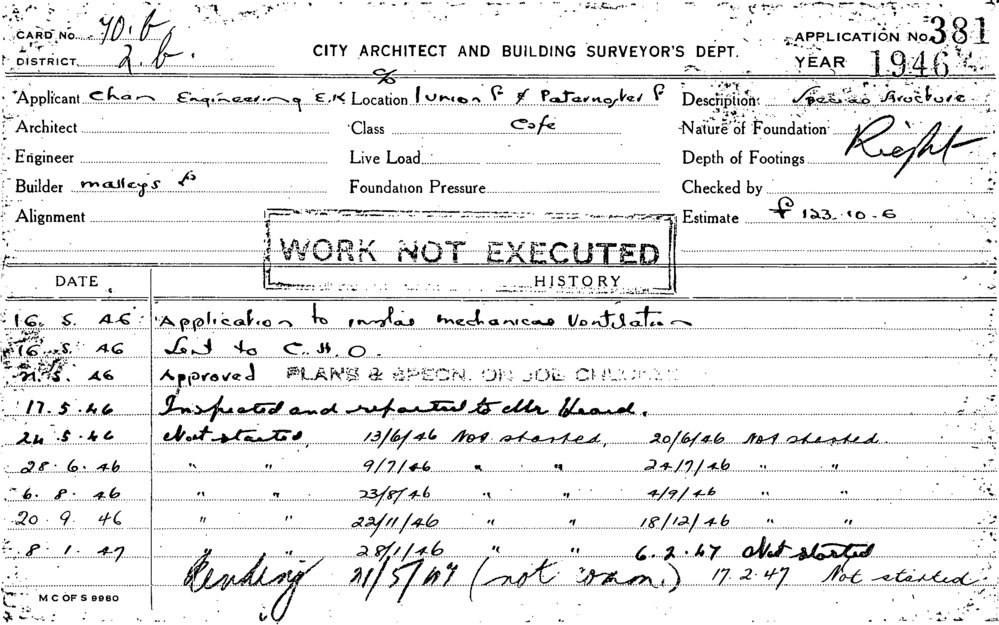 CARD No. 70.b
DISTRICT 2.b.
CITY ARCHITECT AND BUILDING SURVEYOR'S DEPT.
APPLICATION No 381
YEAR 1946
Applicant Chan Engineering E.K Location Junion P & Paternoster P Description Species Structure
Architect Class Cafe Nature of Foundation Right
Engineer Live Load Depth of Footings
Builder Malleys P Foundation Pressure Checked by
Alignment Estimate £ 123.10.6
WORK NOT EXECUTED
DATE HISTORY
16. 5. 46 Application to mechanical Ventilation
16. 5. 46 Sent to C.H.O.
5. 46 Approved PLANS & SPECN. ON JOB
17. 5. 46 Inspected and reported to Mr Heard.
24. 5. 46 Not started, 13/6/46 Not started, 20/6/46 Not started.
28. 6. 46 " " 9/7/46 " " 24/7/46 " "
6. 8. 46 " " 23/8/46 " " 4/9/46 " "
20. 9. 46 " " 22/11/46 " " 18/12/46 " "
8. 1. 47 " " 28/1/46 " " 6. 2. 47 Not started
Pending 21/5/47 (not comm.) 17. 2. 47 Not started
M C OF S 9980